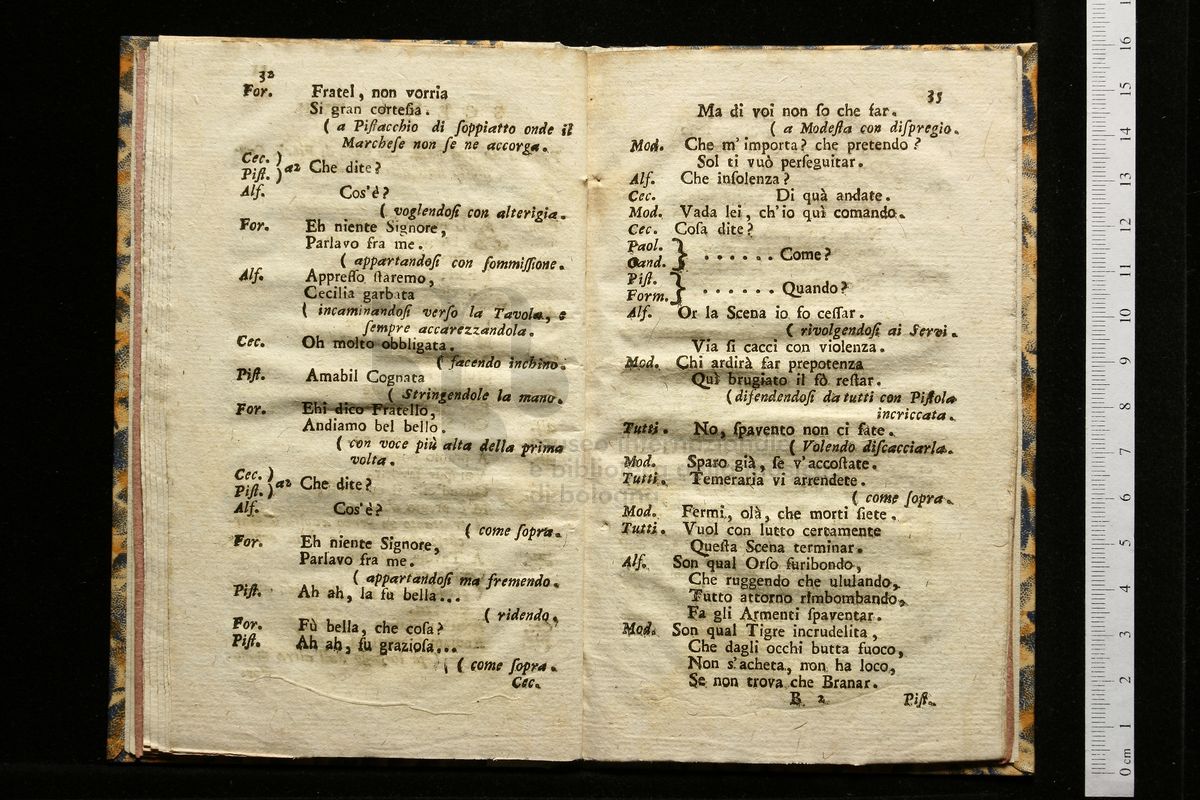 32
For. Fratel, non vorria
Si gran corteſia.
( a Piſtacchio di ſoppiatto onde il
Marcheſe non ſe ne accorga.
Cec. )
Piſt. ) a2 Che dite?
Alf. Cos'è?
( voglendoſi con alterigia.
For. Eh niente Signore,
Parlavo fra me.
( appartandoſi con ſommiſſione.
Alf. Appreſſo ſtaremo,
Cecilia garbata
( incaminandoſi verſo la Tavola, e
ſempre accarezzandola.
Cec. Oh molto obbligata.
( facendo inchino.
Piſt. Amabil Cognata
( Stringendole la mano.
For. Ehi dico Fratello,
Andiamo bel bello.
( con voce più alta della prima
volta.
Cec. )
Piſt. ) a2 Che dite?
Alf. Cos'è?
( come ſopra.
For. Eh niente Signore,
Parlavo fra me.
( appartandoſi ma fremendo.
Piſt. Ah ah, la fu bella...
( ridendo,
For. Fù bella, che coſa?
Piſt. Ah ah, fu grazioſa...
( come ſopra.
Cec.
35
Ma di voi non ſo che far.
( a Modeſta con diſpregio.
Mod. Che m'importa? che pretendo?
Sol ti vuò perſeguitar.
Alf. Che inſolenza?
Cec. Di quà andate.
Mod. Vada lei, ch'io quì comando.
Cec. Coſa dite?
Paol.
Cand. } . . . . . . Come?
Piſt.
Form. } . . . . . . Quando?
Alf. Or la Scena io fo ceſſar.
( rivolgendoſi ai Servi.
Via ſi cacci con violenza.
Mod. Chi ardirà far prepotenza
Quì brugiato il fò reſtar.
( difendendoſi da tutti con Piſtola
incriccata.
Tutti. No, ſpavento non ci fate.
( Volendo diſcacciarla.
Mod. Sparo già, ſe v'accoſtate.
Tutti. Temeraria vi arrendete.
( come ſopra.
Mod. Fermi, olà, che morti ſiete.
Tutti. Vuol con lutto certamente
Queſta Scena terminar.
Alf. Son qual Orſo furibondo,
Che ruggendo che ululando,
Tutto attorno rimbombando,
Fa gli Armenti ſpaventar.
Mod. Son qual Tigre incrudelita,
Che dagli occhi butta fuoco,
Non s'acheta, non ha loco,
Se non trova che Branar.
B 2 Piſt.
museo internazionale
e biblioteca
di bologna
0 cm 1 2 3 4 5 6 7 8 9 10 11 12 13 14 15 16